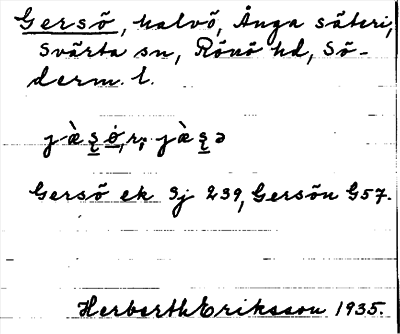 Gersö, halvö, Ånga säteri,
Svärta sn, Rönö hd, Sö-
derm. l.
Gersö ek 3j 239, Gersön G57.
Herberth Eriksson 1935.